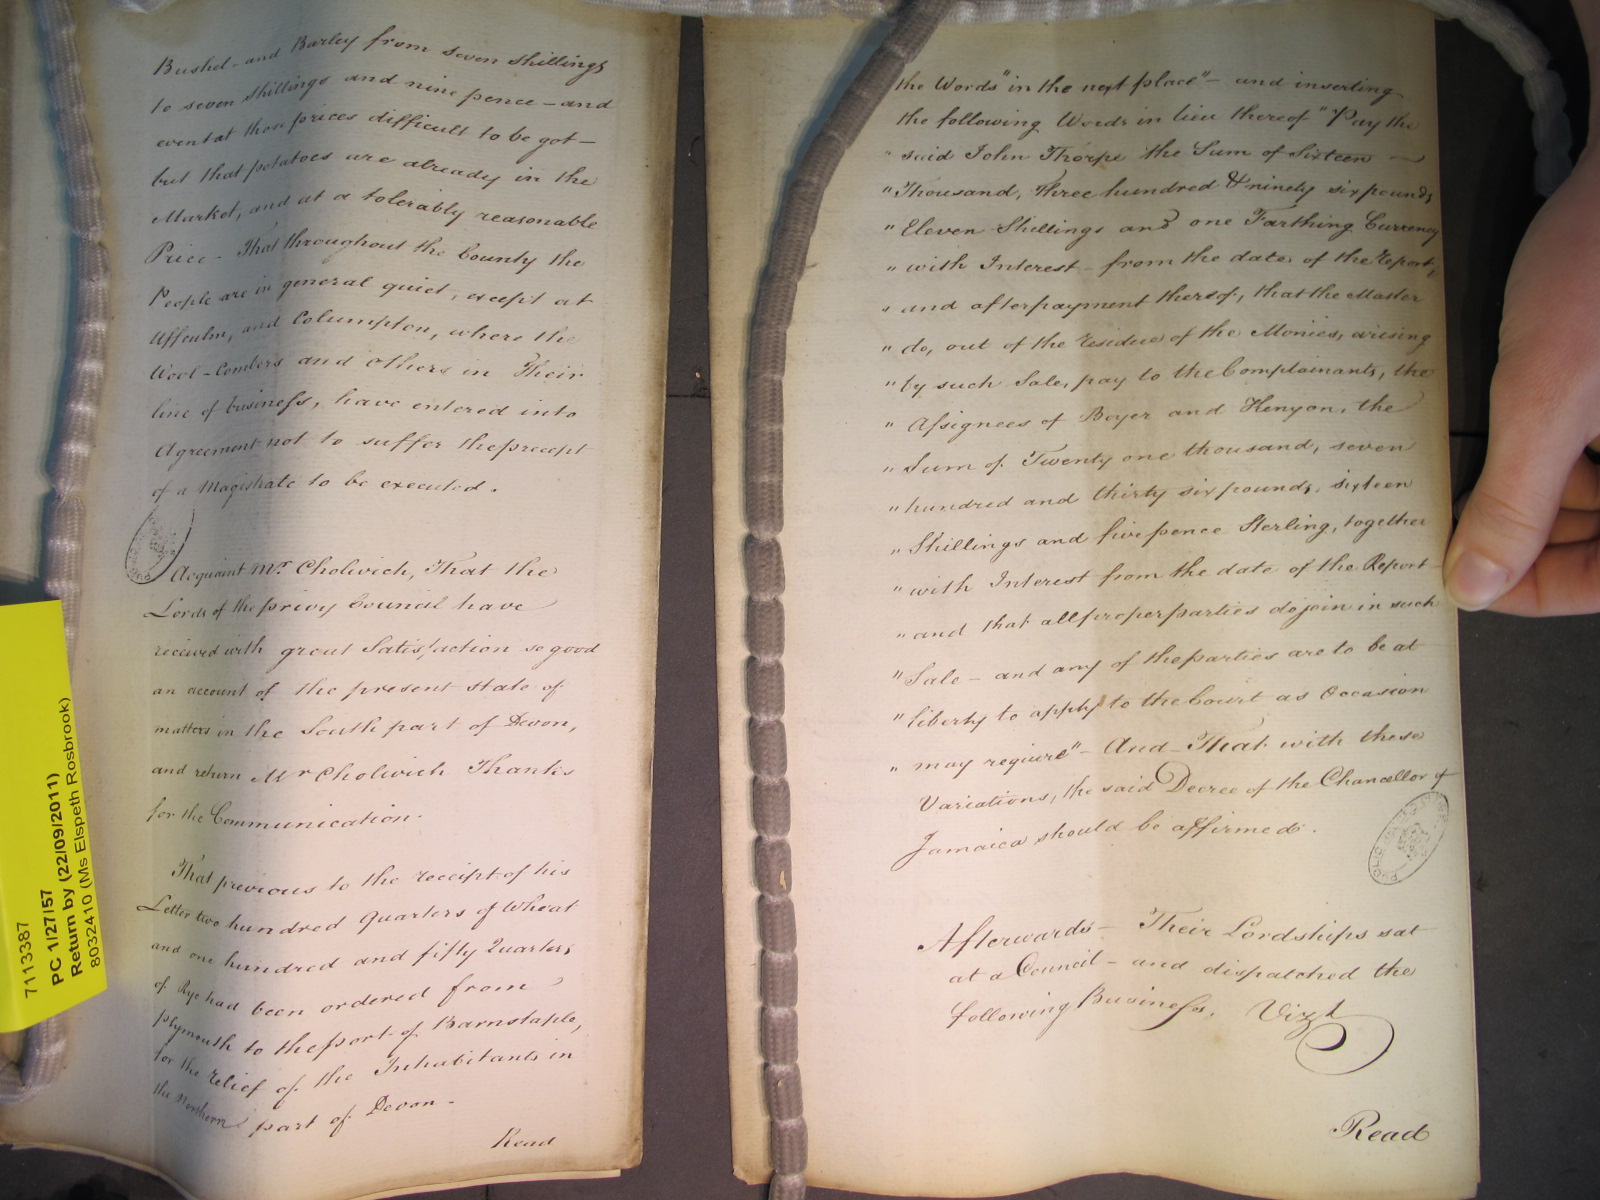 Bushel - and Barley from seven shillings
to seven shillings and nine pence - and
even at those prices difficult to be got -
but that potatoes are already in the
Market, and at a tolerably reasonable
Price - That throughout the County the
People are in general quiet, except at
Uffculm, and Columpton, where the
Wool-Combers and others in Their
line of business, have entered into
Agreement not to suffer the precept
of a Magistrate to be executed.
Acquaint Mr. Cholwich, That the
Lords of the privy Council have
received with great Satisfaction so good
an account of the present state of
matters in the South part of Devon,
and return Mr Cholwich Thanks
for the Communication.
That previous to the receipt of his
Letter two hundred Quarters of Wheat
and one hundred and fifty Quarters
of Rye had been ordered from
plymouth to the port of Barnstaple,
for the relief of the Inhabitants in
the Northern part of Devon -
Read
7113387
PC 1/27/57
Return by (22/09/2011)
8032410 (Ms Elspeth Rosbrook)
the Words "in the next place" - and inserting
the following Words in lieu thereof "Pay the
" said John Thorpe the Sum of Sixteen
" Thousand, Three hundred & ninety six pounds
" Eleven Shillings and one Farthing Currency
" with Interest - from the date of the Report,
" and after payment thereof, that the Master
" do, out of the residue of the Monies, arising
" by such Sale, pay to the Complainants, the
" Assignees of Boyer and Kenyon, the
" Sum of Twenty one thousand, seven
" hundred and thirty six pounds, sixteen
" Shillings and five pence Sterling, together
" with Interest from the date of the Report
" and that all proper parties do join in such
" Sale - and any of the parties are to be at
" liberty to apply to the Court as Occasion
" may require" - And That with these
Variations, the said Decree of the Chancellor of
Jamaica should be affirmed.
Afterwards - Their Lordships sat
at a Council - and dispatched the
following Business. Vizt
Read